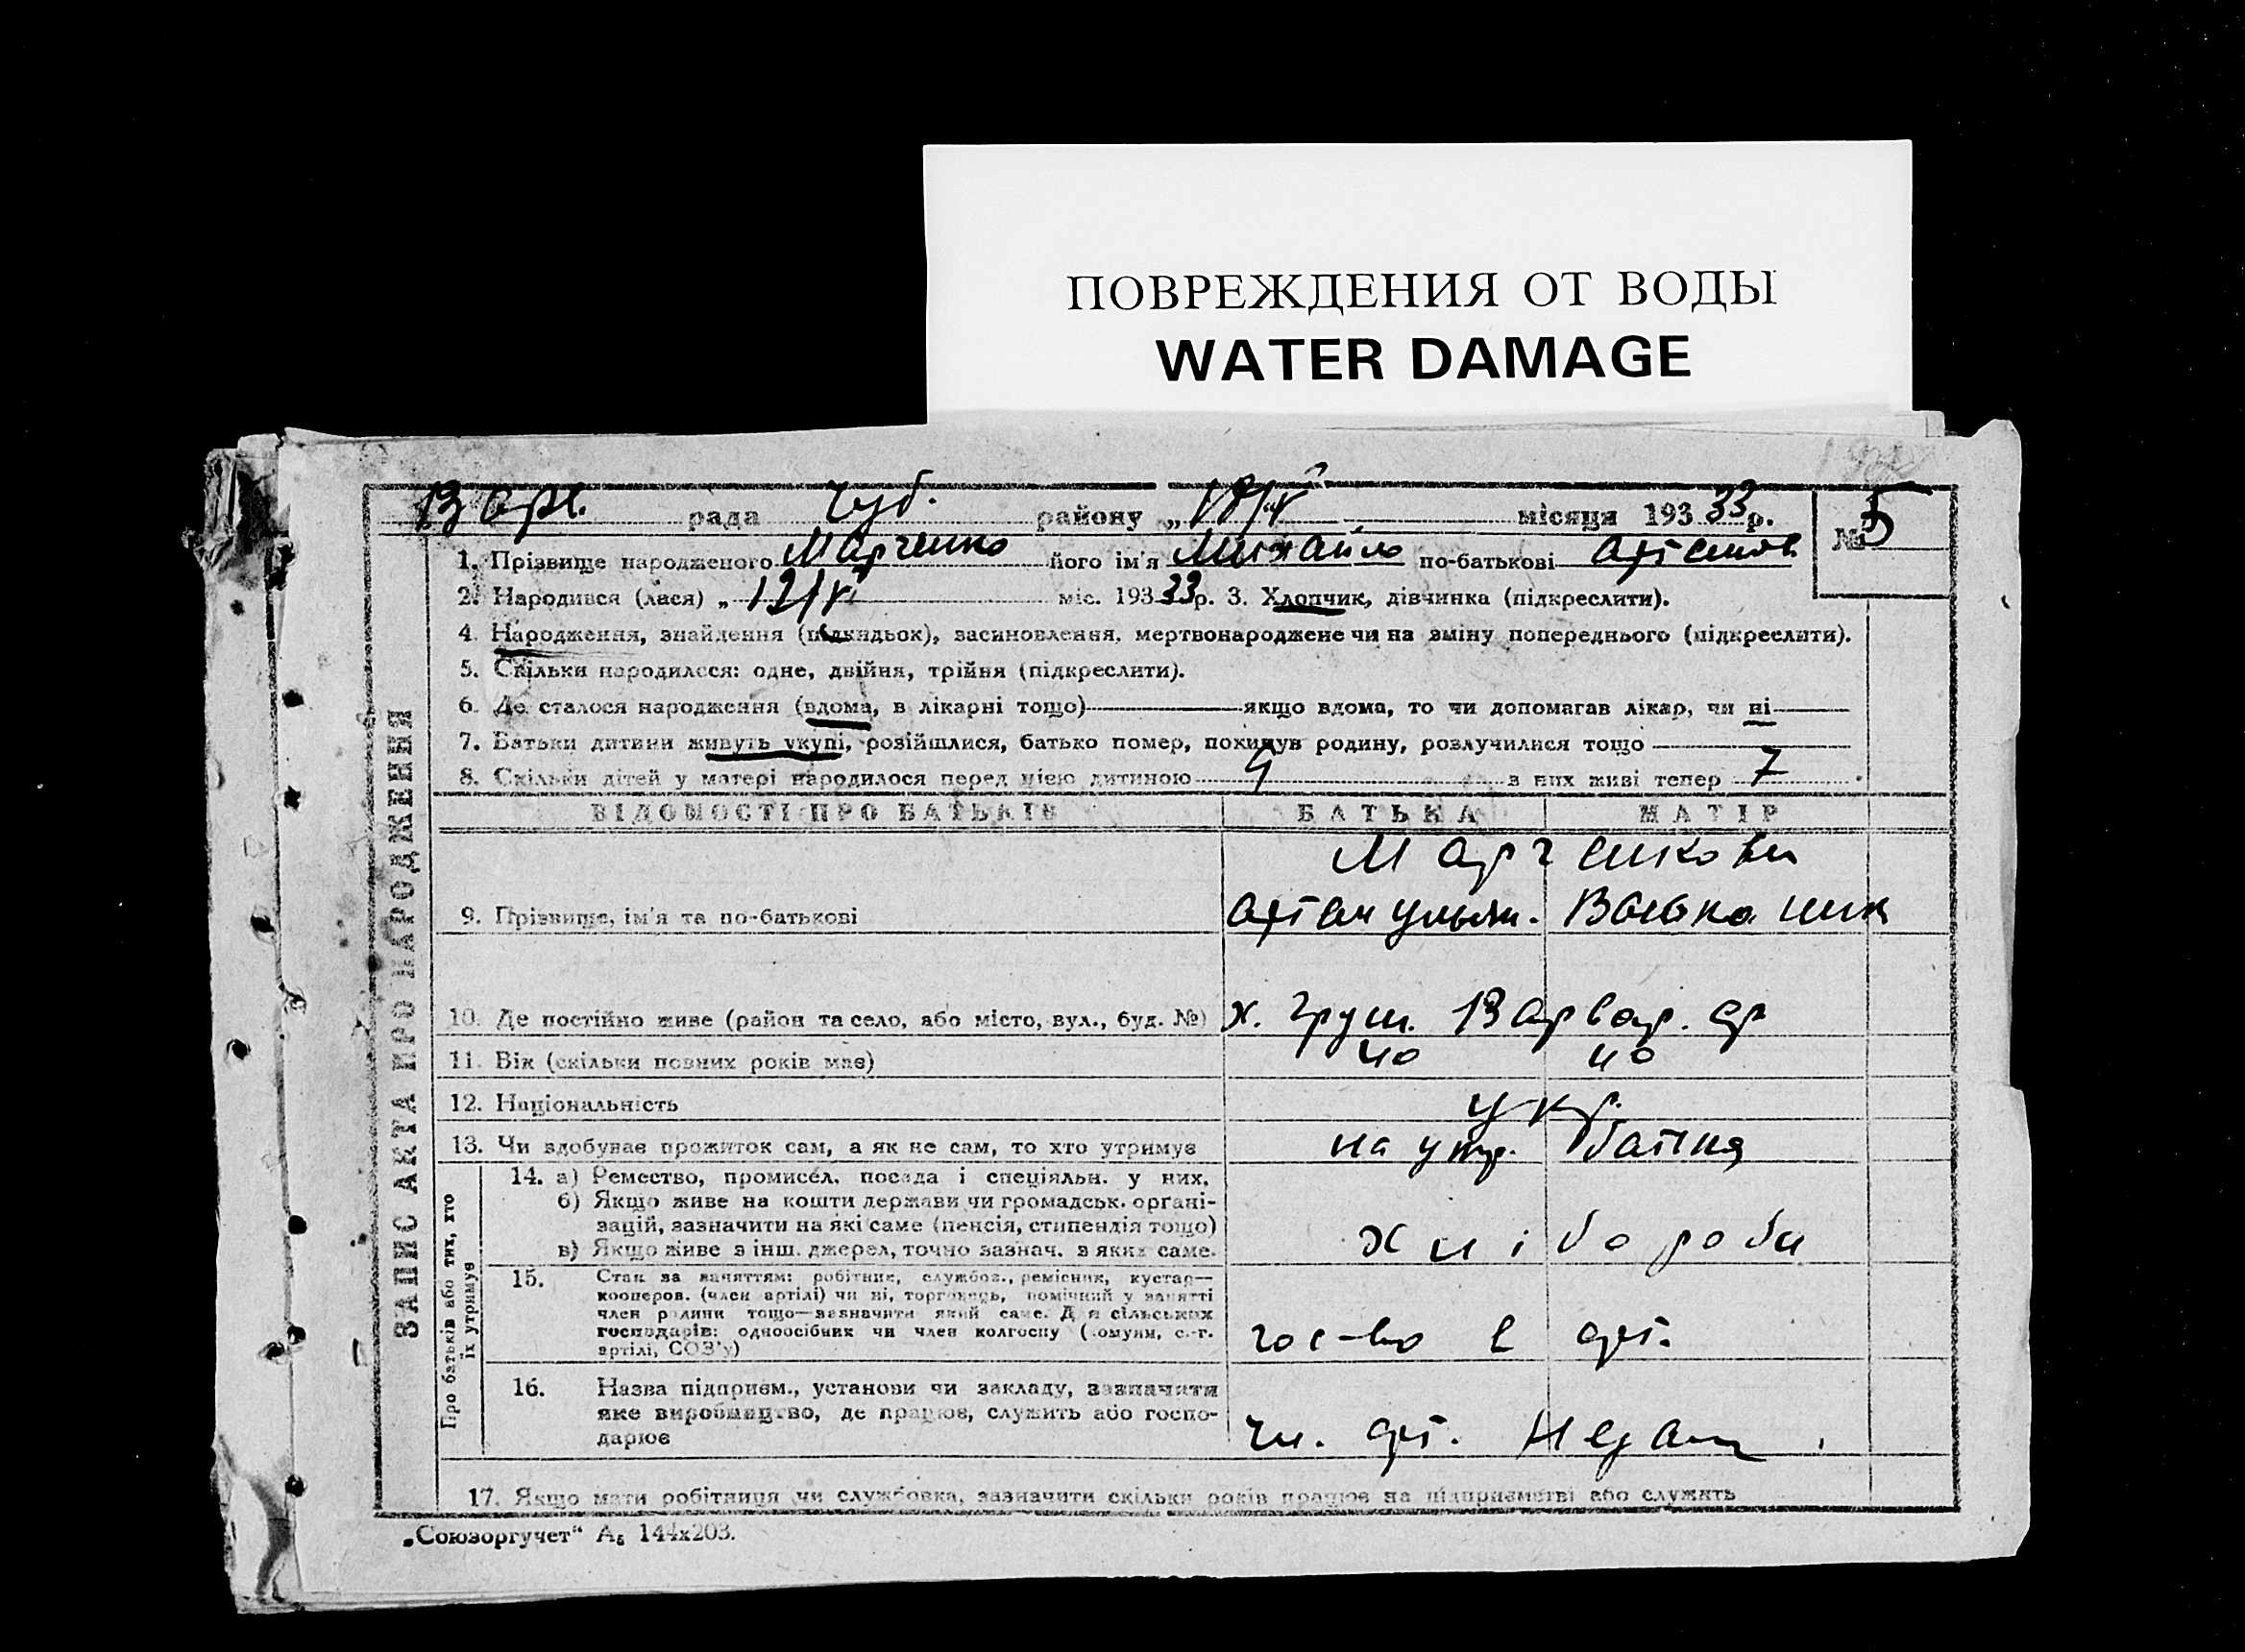 ПОВРЕЖДЕНИЯ ОТ ВОДЫ
WATER DAMAGE
Варв. рада Чуб. району „ 18/V місяця 193 33 р. № 5
1. Прізвище народженого Марченко його ім'я Михайло по-батькові
2. Народився (лася) „ 12/V міс. 193 33 р. 3. Хлопчик, дівчинка (підкреслити).
4. Народження, знайдення (підкидьок), засиновлення, мертвонароджене чи на зміну попереднього (підкреслити).
5. Скільки народилося: одне, двійня, трійня (підкреслити).
6. Де сталося народження (вдома, в лікарні тощо) якщо вдома, то чи допомагав лікар, чи ні
7. Батьки дитини живуть укупі, розійшлися, батько помер, покинув родину, розлучилися тощо
8. Скільки дітей у матері народилося перед цією дитиною 9 з них живі тепер 7
ВІДОМОСТІ ПРО БАТЬКІВ БАТЬКА МАТІР
Марченкови
9. Прізвище, ім'я та по-батькові
10. Де постійно живе (район та село, або місто, вул., буд. №) х. Груш. Варвар. ср
11. Вік (скільки повних років має) 40 40
12. Національність укр.
13. Чи здобуває прожиток сам, а як не сам, то хто утримує на утр. батька
14. а) Ремество, промисел, посада і спеціяльн. у них.
б) Якщо живе на кошти держави чи громадськ. органі-
зацій, зазначити на які саме (пенсія, стипендія тощо)
в) Якщо живе з інш. джерел, точно зазнач. з яких саме.
хлібороби
15. Стан за заняттям: робітник, службов., ремісник, кустар—
кооперов. (член артілі) чи ні, торговець, помічний у занятті
член родини тощо—зазначити який саме. Для сільських
господарів: одноосібник чи член колгоспу (комуни, с.-г.
артілі, СОЗ'у)
гос-во в арт.
16. Назва підприєм., установи чи закладу, зазначити
яке виробництво, де працює, служить або госпо-
дарює
чл. арт.
17. Якщо мати робітниця чи службовка, зазначити скільки років працює на підприємстві або служить
ЗАПИС АКТА ПРО НАРОДЖЕННЯ
Про батьків або тих, хто
їх утримує
„Союзоргучет“ А₅ 144x203.